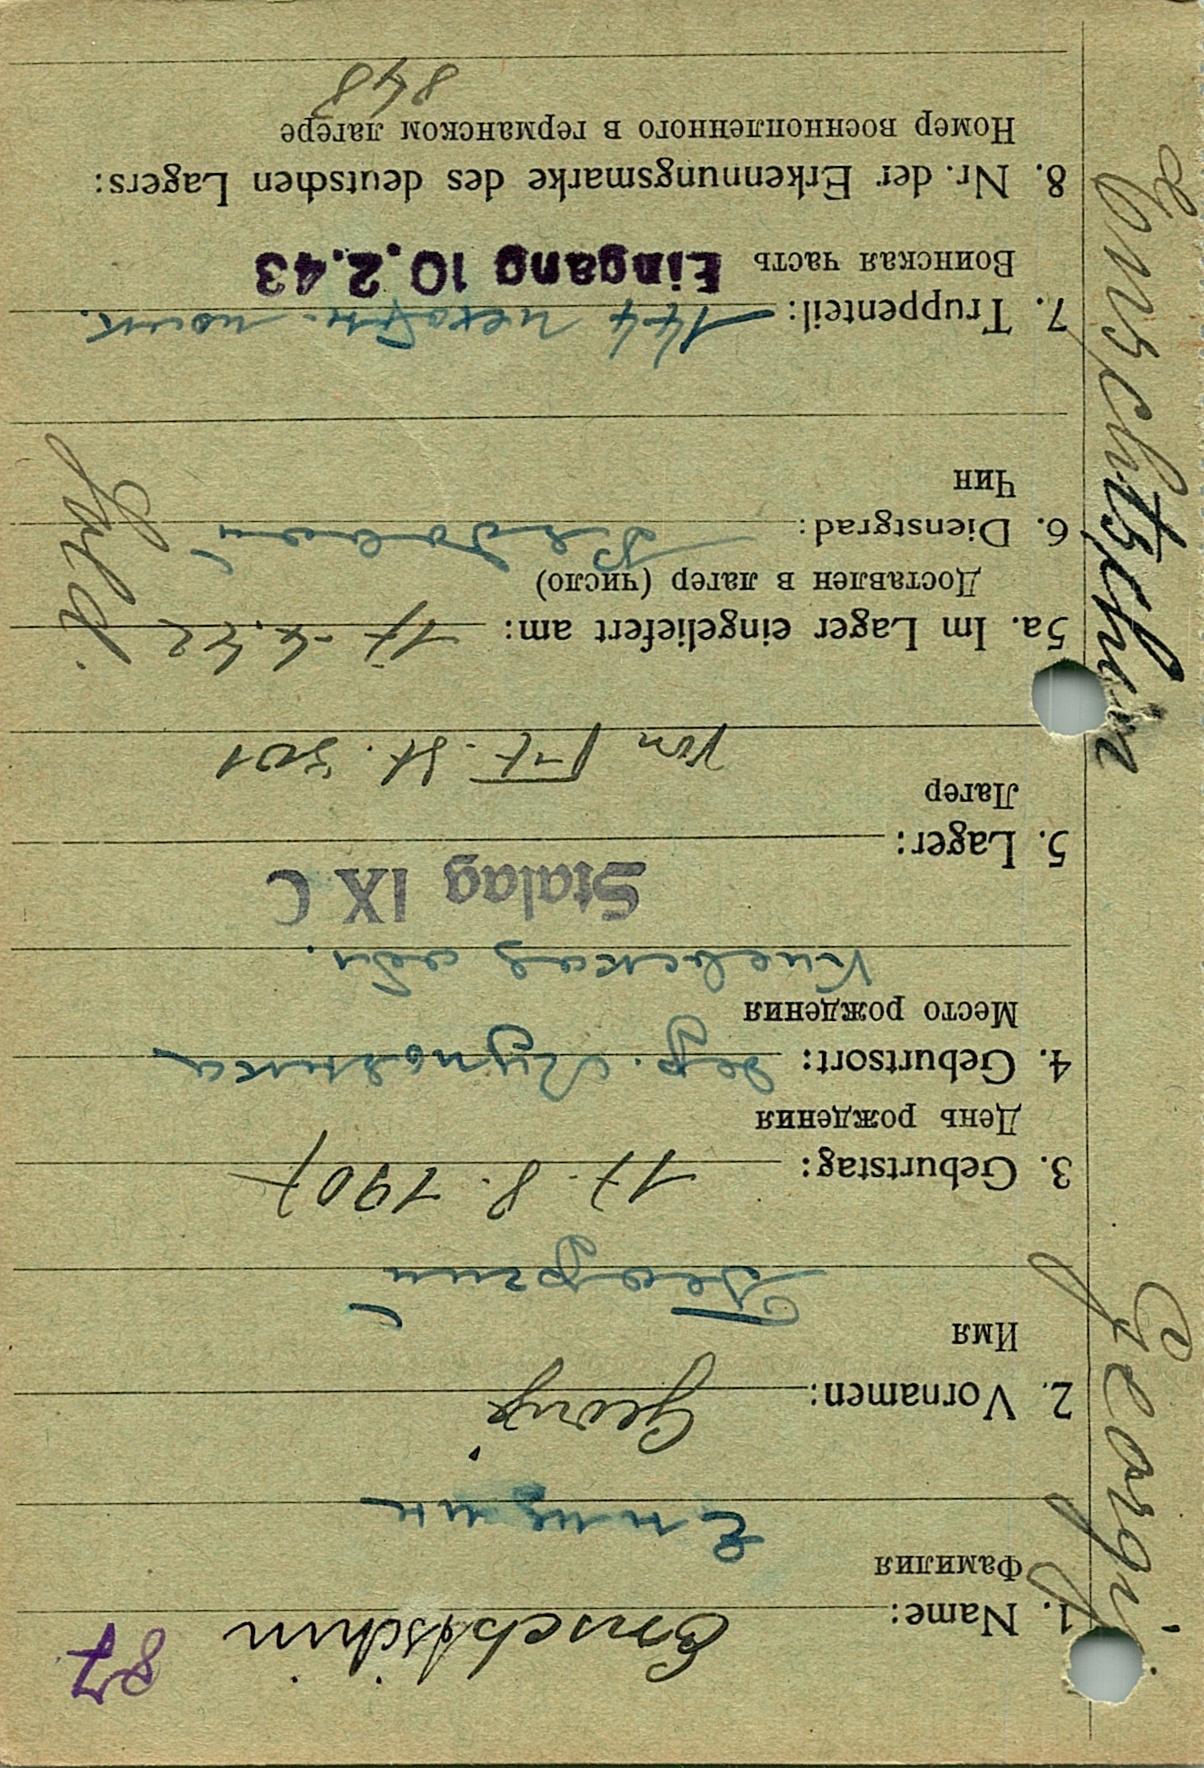 87
1. Name: Enschtschin
Фамилия
Енщин
2. Vornamen: Georgij
Имя
Георгий
3. Geburtstag: 17. 8. 1907
День рождения
4. Geburtsort: дер.
Место рождения
Киевская обл.
Stalag IX C
5. Lager:
Лагер
von Frt. St. 301
5a. Im Lager eingeliefert am: 17.4.42
Доставлен в лагер (число)
6. Dienstgrad: Рядовой
Чин
Sold.
7. Truppenteil: 144
Воинская часть Eingang 10.2.43
8. Nr. der Erkennungsmarke des deutschen Lagers:
Номер военнопленного в германском лагере
848
Georgij Jenschtschin